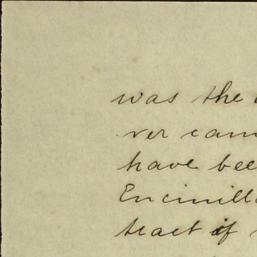 was the
ver cam
have bee
Encinill
tract if